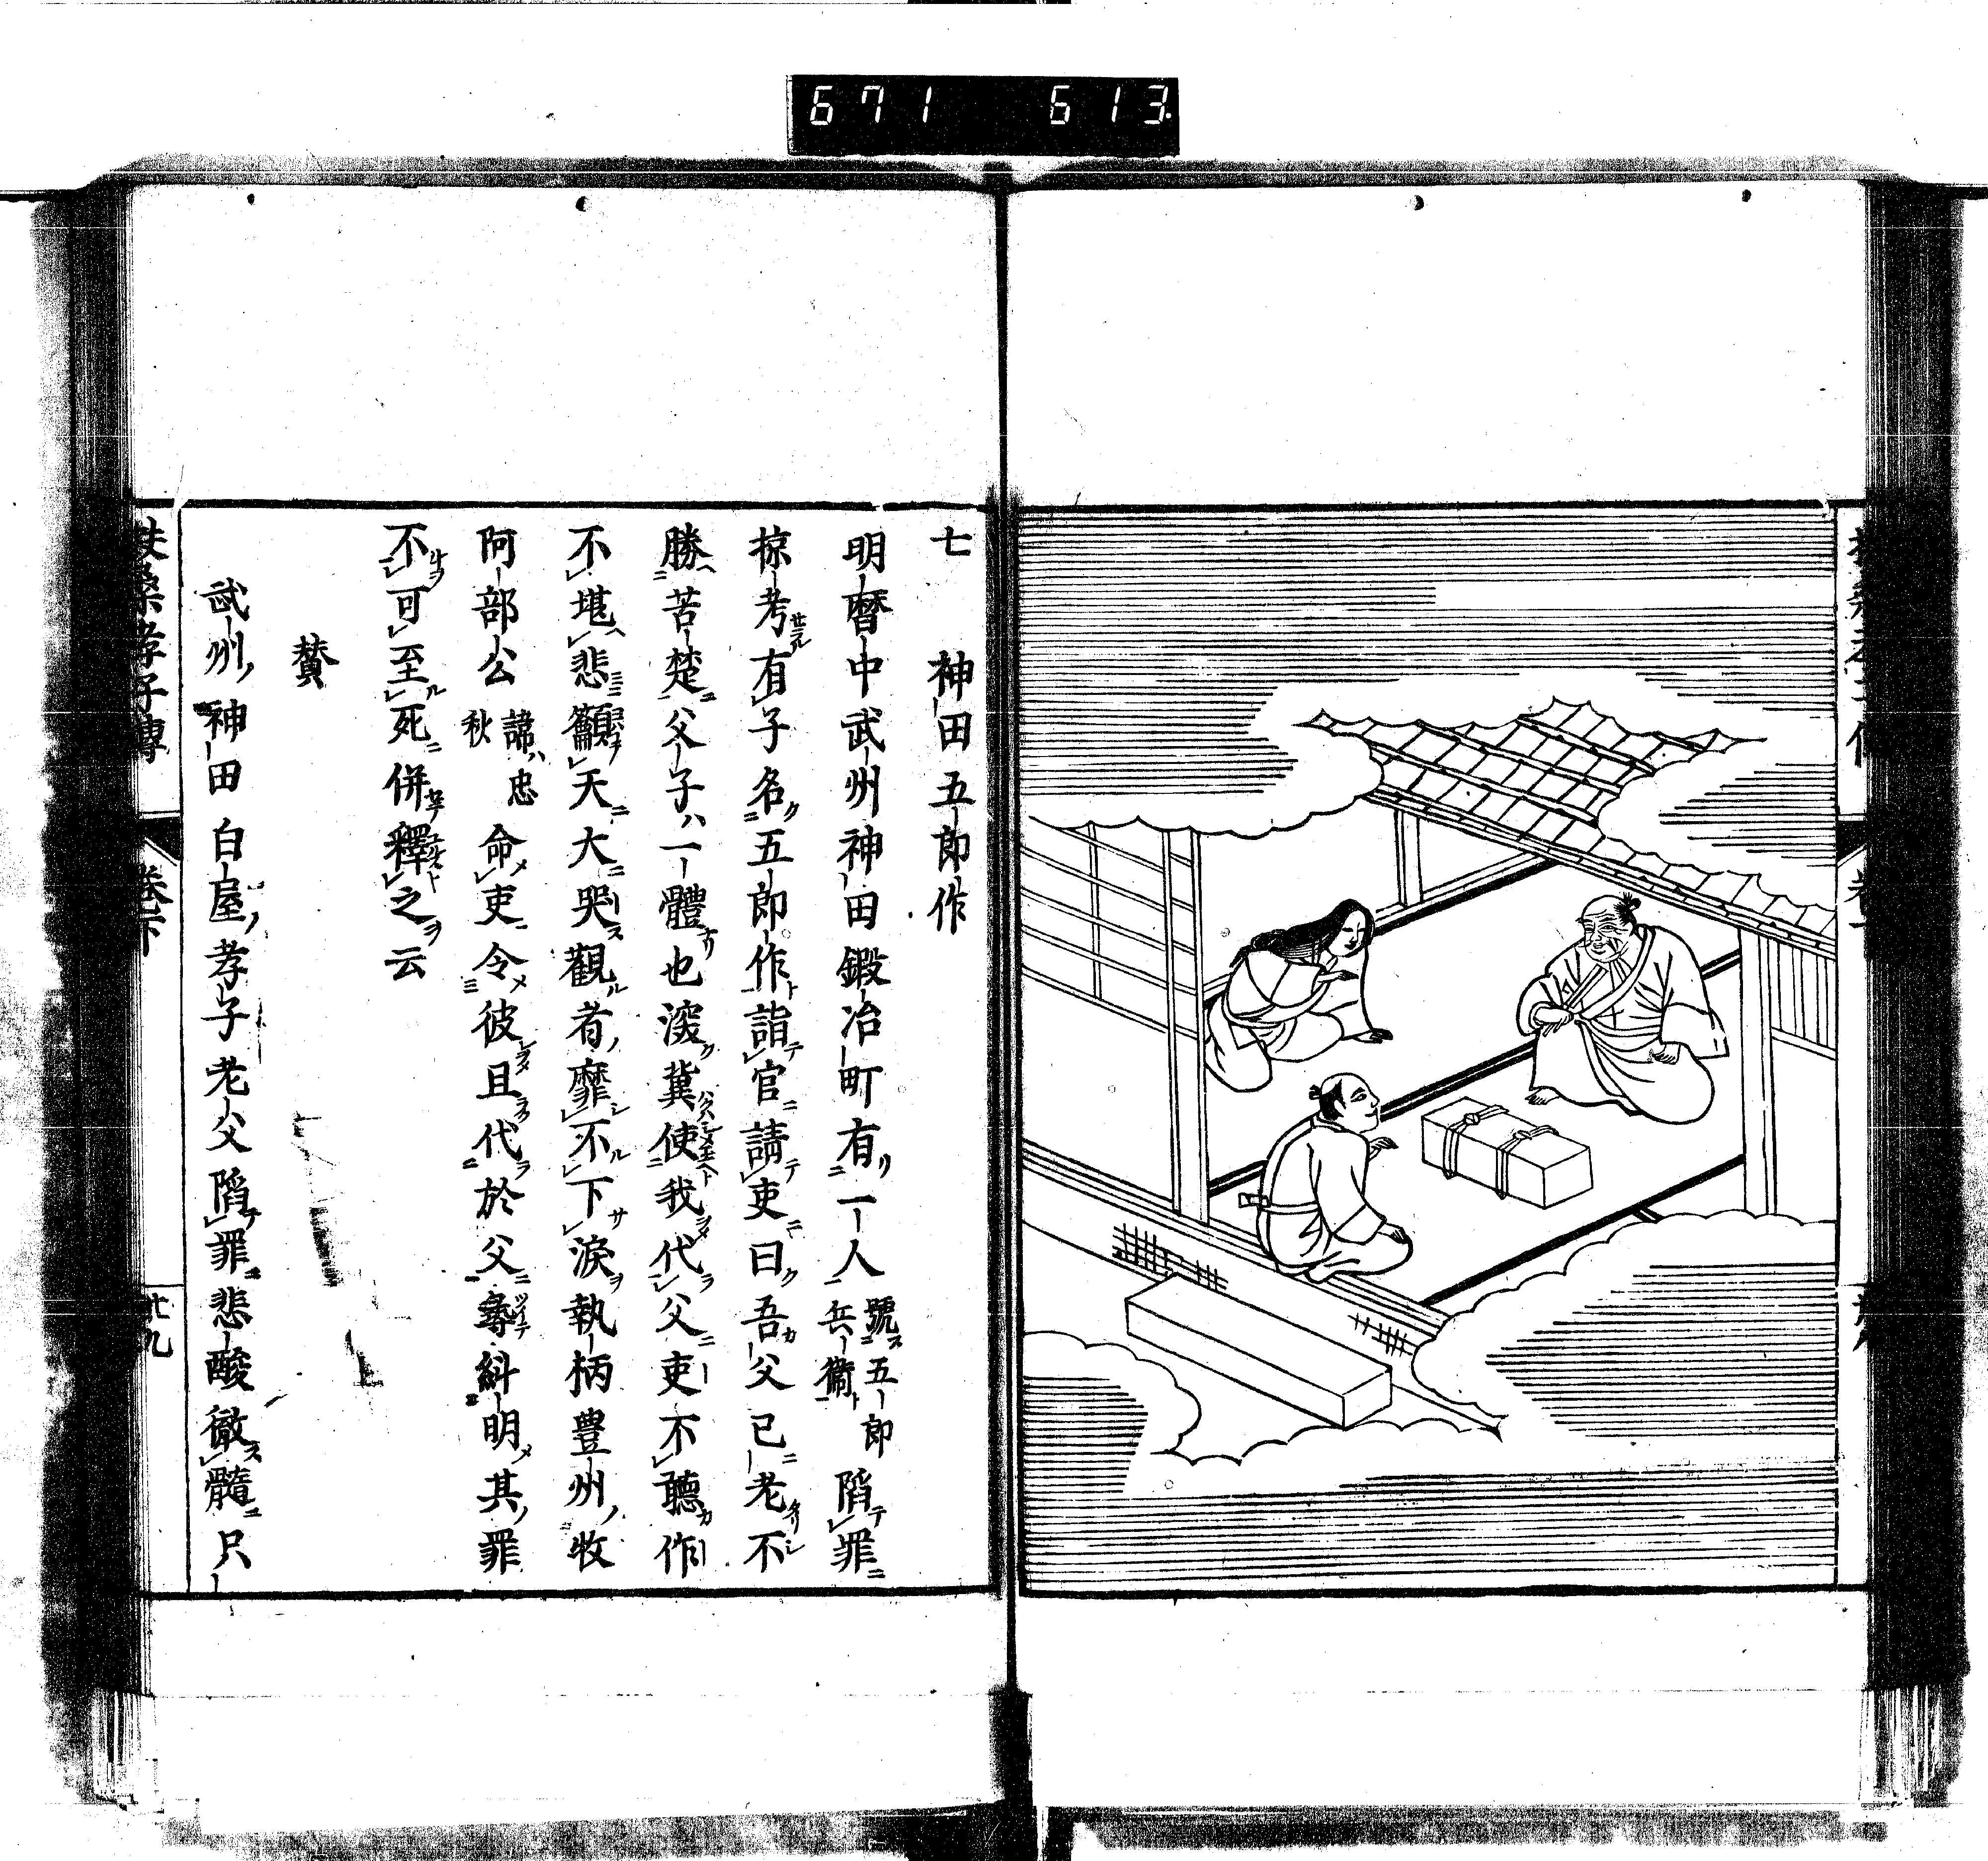 671 613
七 神田五郎作
明暦中武州神田鍛冶町有一人號五郎兵衞陷罪
掠考有子名五郎作詣官請吏曰吾父已老不
勝苦楚父子一體也深冀使我代父吏不聽作
不堪悲籲天大哭觀者靡不下淚執柄豊州牧
阿部公諱忠秋命吏令彼且代於父尋糾明其罪
不可至死併釋之云
賛
武州神田白屋孝子老父陷罪悲酸徹髓只
扶桑孝子傳 卷下 廿九